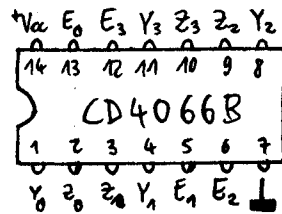 +Vcc E0 E3 Y3 Z3 Z2 Y2
14 13 12 11 10 9 8
CD4066B
1 2 3 4 5 6 7
Y0 Z0 Z1 Y1 E1 E2